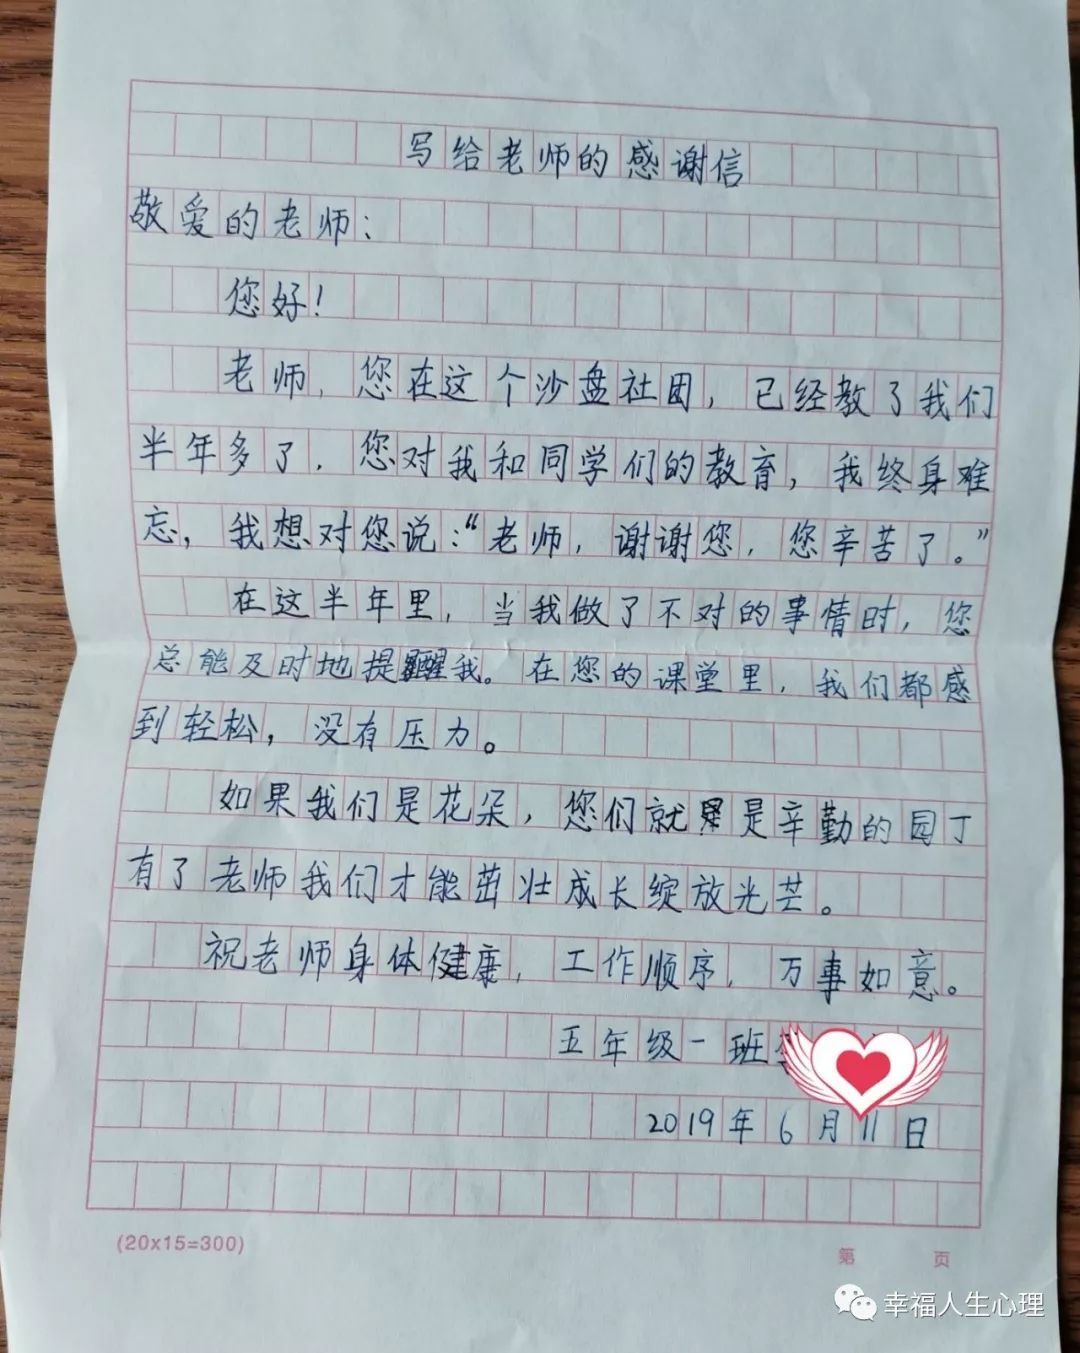 写给老师的感谢信
敬爱的老师：
您好！
老师，您在这个沙盘社团，已经教了我们
半年多了．您对我和同学们的教育，我终身难
忘，我想对您说：“老师，谢谢您，您辛苦了。”
在这半年里，当我做了不对的事情时，您
总能及时地提醒我。在您的课堂里，我们都感
到轻松，没有压力。
如果我们是花朵，您们就是辛勤的园丁
有了老师我们才能茁壮成长绽放光芒。
祝老师身体健康，工作顺序，万事如意。
五年级一班
2019年6月11日
(20x15=300)
第 页
幸福人生心理